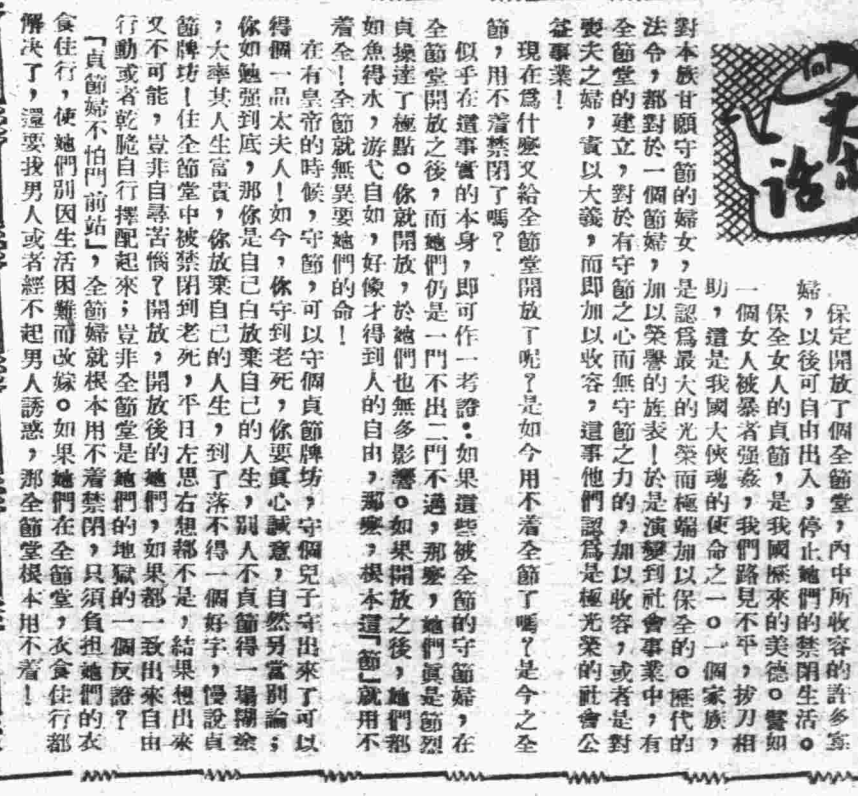 天津
話
保定開放了個全節堂，內中所收容的許多寡
婦，以後可自由出入，停止她們的禁閉生活。
保全女人的貞節，是我國歷來的美德。譬如
一個女人被暴者强姦，我們路見不平，拔刀相
助，這是我國大俠魂的使命之一。一個家族，
對本族甘願守節的婦女，是認爲最大的光榮而極端加以保全的。歷代的
法令，都對於一個節婦，加以榮譽的旌表！於是演變到社會事業中，有
全節堂的建立，對於有守節之心而無守節之力的，加以收容，或者是對
喪夫之婦，責以大義，而即加以收容，這事他們認爲是極光榮的社會公
益事業！
現在爲什麽又給全節堂開放了呢？是如今用不着全節了嗎？是今之全
節，用不着禁閉了嗎？
似乎在這事實的本身，即可作一考證：如果這些被全節的守節婦，在
全節堂開放之後，而她們仍是一門不出二門不邁，那麽，她們眞是節烈
貞操達了極點。你就開放，於她們也無多影響。如果開放之後，她們都
如魚得水，游弋自如，好像才得到人的自由，那麽，根本這「節」就用不
着全！全節就無異要她們的命！
在有皇帝的時候，守節，可以守個貞節牌坊，守個兒子守出來了可以
得個一品太夫人！如今，你守到老死，你要眞心誠意，自然另當別論；
你如勉强到底，那你是自己白放棄自己的人生，別人不貞節得一塲糊塗
，大率其人生富貴，你放棄自己的人生，到了落不得一個好字，慢說貞
節牌坊！住全節堂中被禁閉到老死，平日左思右想都不是，結果想出來
又不可能，豈非自尋苦惱？開放，開放後的她們，如果都一致出來自由
行動或者乾脆自行擇配起來；豈非全節堂是她們的地獄的一個反證？
「貞節婦不怕門前站」，全節婦就根本用不着禁閉，只須負担她們的衣
食住行，使她們別因生活困難而改嫁。如果她們在全節堂，衣食住行都
解決了，還要找男人或者經不起男人誘惑，那全節堂根本用不着！